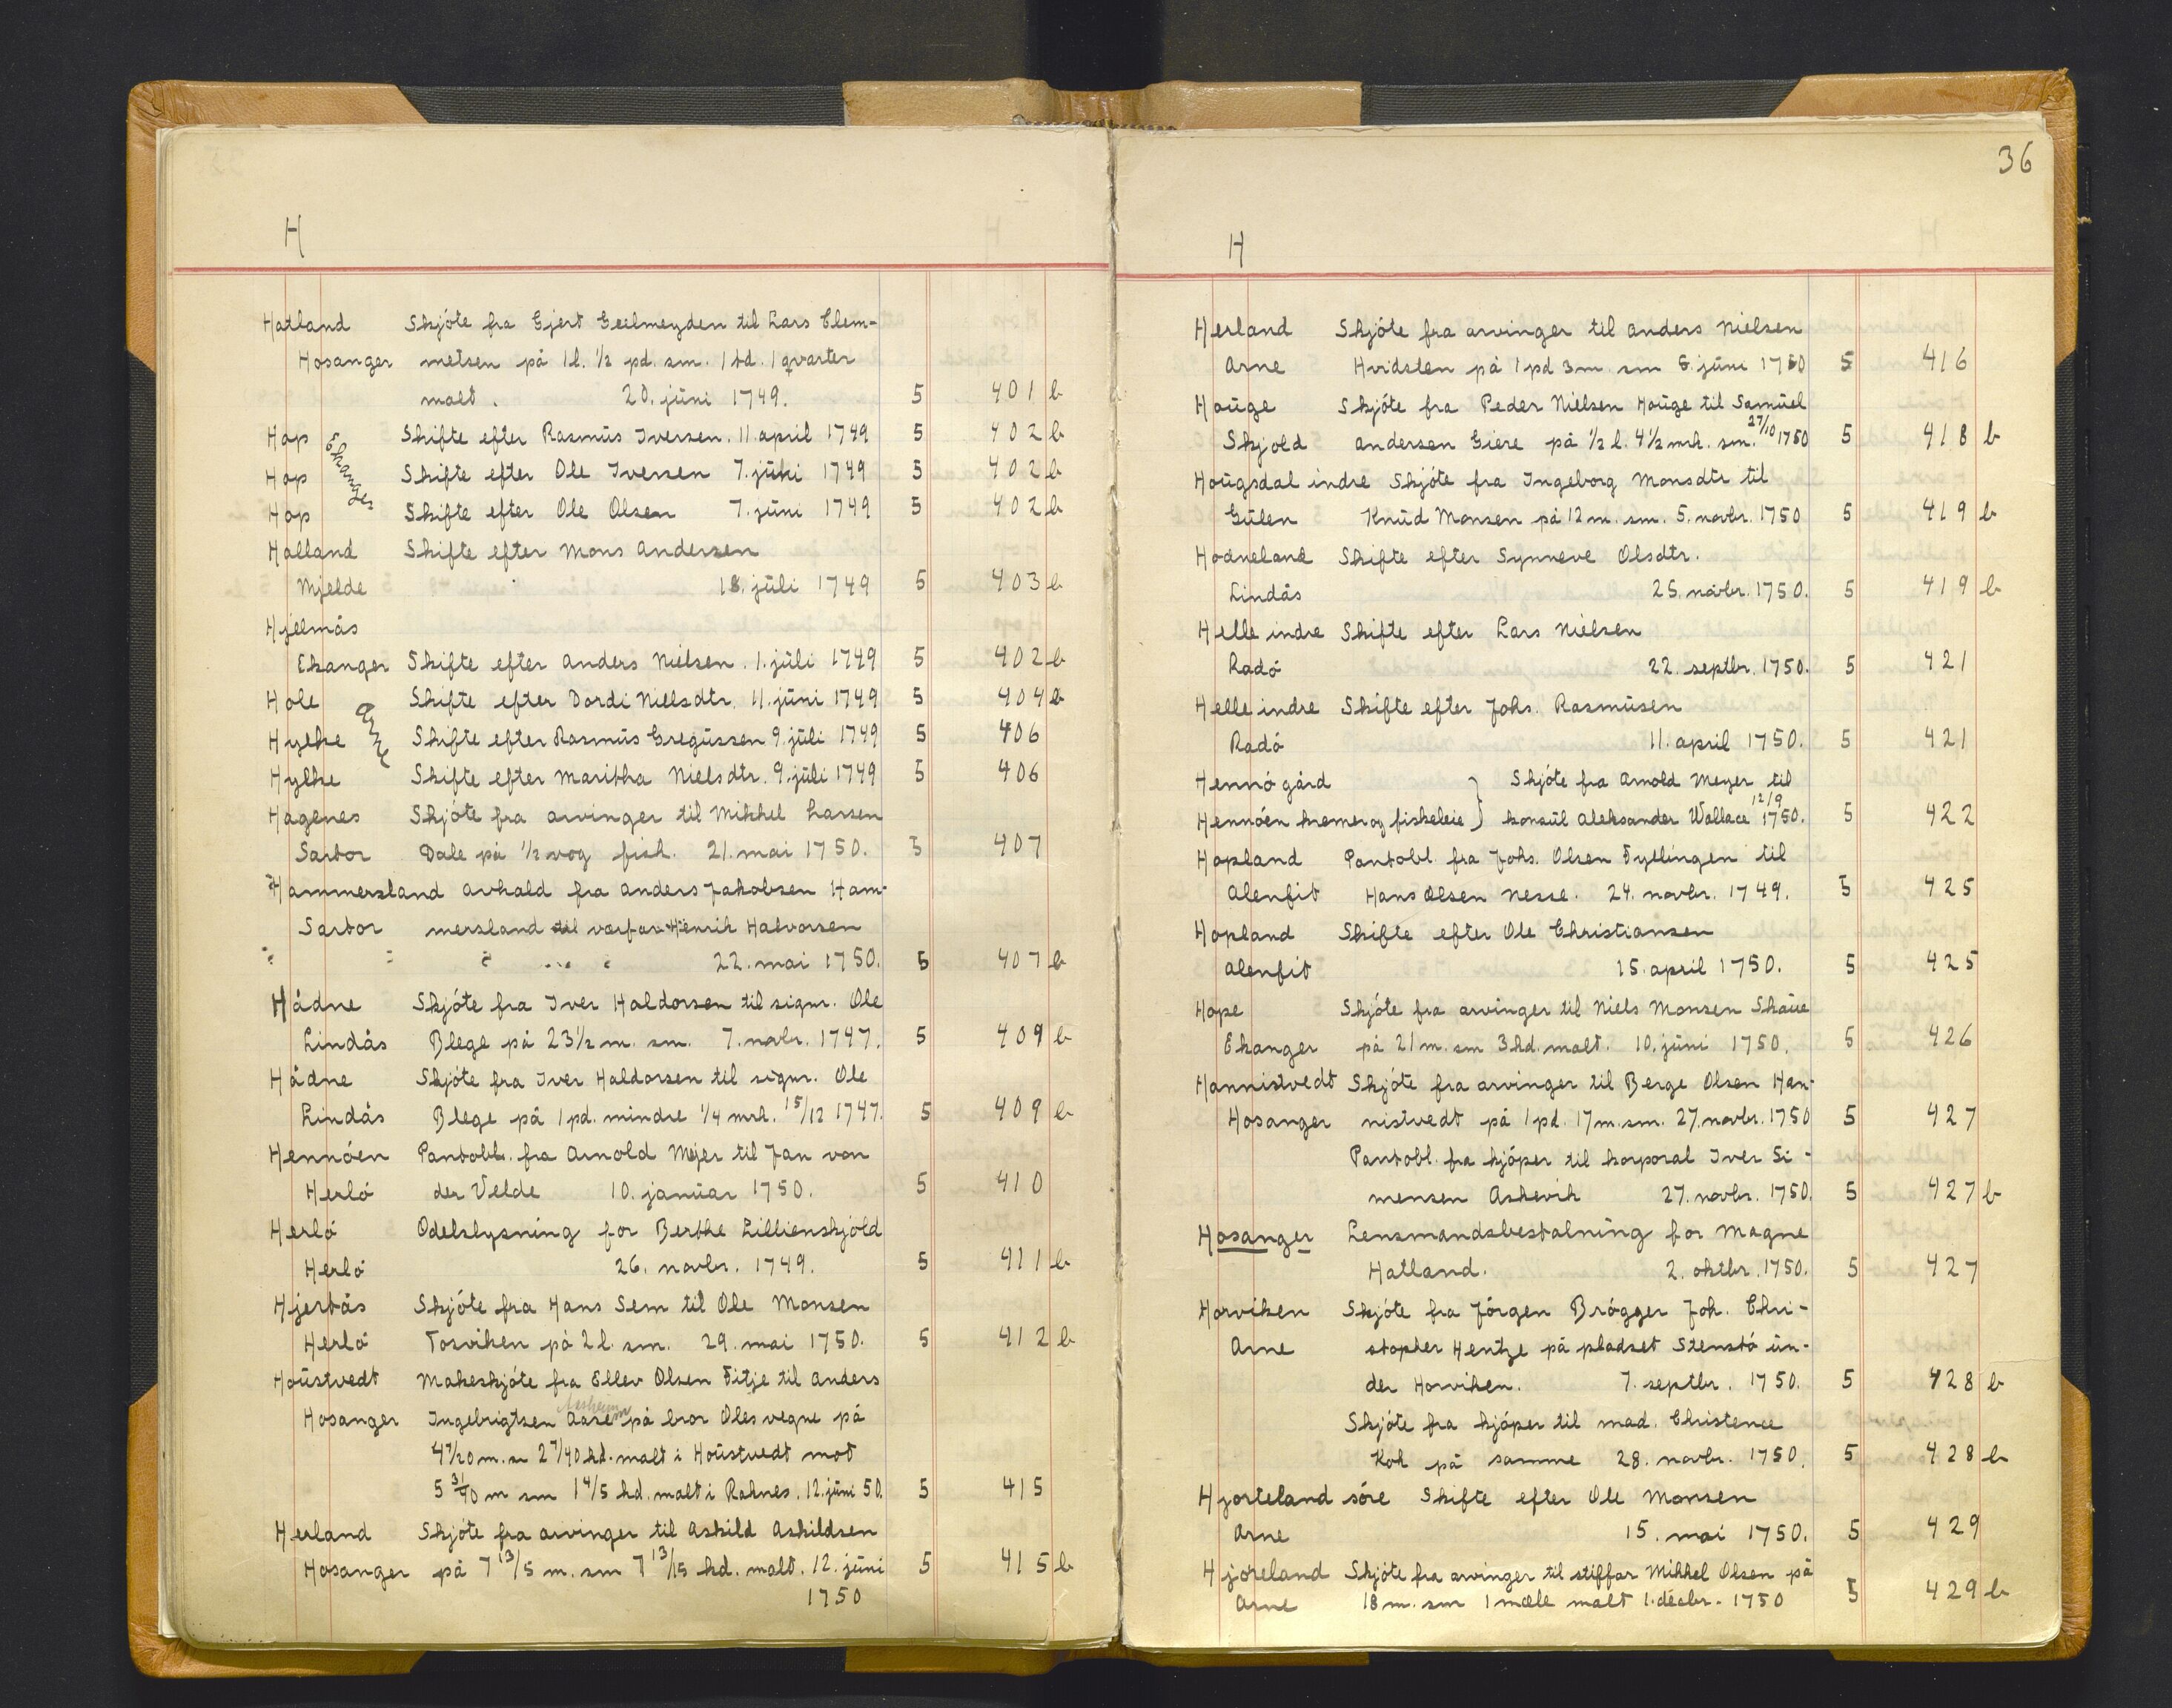 H
Hatland Skjóte fra Gjert Geelmeyden til Lars Clem-
Hosanger metsen på 1 l. ½ pd. sm. 1 td. 1 qvarter
malt. 20. júni 1749. 5 401 b
Hop Skifte efter Rasmús Iversen. 11. april 1749 5 402 b
Ekanger
Hop Skifte efter Ole Iversen 7. júni 1749 5 402 b
Hop Skifte efter Ole Olsen 7. júni 1749 5 402 b
Halland Skifte efter Mons Andersen
Mjelde 18. júli 1749 5 403 b
Hjelmås
Ekanger Skifte efter Anders Nielsen. 1. júli 1749 5 402 b
Hole Skifte efter Dordi Nielsdtr. 11. júni 1749 5 404 b
Arne
Hylke Skifte efter Rasmús Gregússen 9. júli 1749 5 406
Hylke Skifte efter Maritha Nielsdtr. 9. júli 1749 5 406
Hagenes Skjóte fra arvinger til Mikkel Larsen
Sartor Dale på ½ vog fisk. 21. mai 1750. 5 407
Hammersland avhald fra Anders Jakobsen Ham-
Sartor mersland til varfar Henrik Halvorsen
22. mai 1750. 5 407 b
Hådne Skjóte fra Iver Haldorsen til signr. Ole
Lindås Blege på 23½ m. sm. 7. novbr. 1747. 5 409 b
Hådne Skjóte fra Iver Haldorsen til signr. Ole
Lindås Blege på 1 pd. mindre ¼ mrk. 15/12 1747. 5 409 b
Hennóen Pantobl. fra Arnold Mejer til Jan von
Herló der Velde 10. janúar 1750. 5 410
Herló Odelslysning for Berthe Lillienskjöld
Herló 26. novbr. 1749. 5 411 b
Hjertås Skjóte fra Hans Sem til Ole Monsen
Herló Torviken på 2 l. sm. 29. mai 1750. 5 412 b
Hoústvedt Makeskjóte fra Ellev Olsen Fitje til Anders
Hosanger Ingebrigtsen Aase på bror Oles vegne på
4 7/20 m. sm 2 7/40 hd. malt i Hoústvedt mot
5 31/40 m sm 1 4/5 hd. malt i Raknes. 12. júni 50. 5 415
Herland Skjóte fra arvinger til Askild Askildsen
Hosanger på 7 13/15 m. sm 7 13/15 hd. malt. 12. júni 5 415 b
1750
36
H
Herland Skjóte fra arvinger til Anders Nielsen
Arne Hvidsten på 1 pd 3 m. sm 8. júni 1750 5 416
Houge Skjóte fra Peder Nielsen Houge til Samúel
Skjold Andersen Giere på ½ l. 4½ mrk. sm. 27/10 1750 5 418 b
Hougsdal indre Skjóte fra Ingeborg Monsdtr til
Gúlen Knúd Monsen på 12 m. sm. 5. novbr. 1750 5 419 b
Hodneland Skifte efter Synneve Olsdtr.
Lindås 25. novbr. 1750. 5 419 b
Helle indre Skifte efter Lars Nielsen
Radó 22. septbr. 1750. 5 421
Helle indre Skifte efter Johs. Rasmúsen
Radó 11. april 1750. 5 421
Hennó gård } Skjóte fra Arnold Meyer til
Hennóen kremer og fiskeleie } konsúl Aleksander Wallace 12/9 1750. 5 422
Hopland Pantobl. fra Johs. Olsen Fyllingen til
Alenfit Hans Olsen Nesse. 24. novbr. 1749. 5 425
Hopland Skifte efter Ole Christiansen
Alenfit 15. april 1750. 5 425
Hope Skjóte fra arvinger til Niels Monsen Skaúe
Ekanger på 21 m. sm 3 hd. malt. 10. júni 1750. 5 426
Hannistvedt Skjóte fra arvinger til Berge Olsen Han-
Hosanger nistvedt på 1 pd. 17 m. sm. 27. novbr. 1750 5 427
Pantobl. fra kjóper til korporal Iver Si-
mensen Askevik 27. novbr. 1750. 5 427 b
Hosanger Lensmandsbestalning for Magne
Hatland. 2. oktbr. 1750. 5 427
Horviken Skjóte fra Jórgen Brógger Joh. Chri-
Arne stopher Hentze på pladset Stenstó ún-
der Horviken. 7. septbr. 1750. 5 428 b
Skjóte fra kjóper til mad. Christence
Koh på samme 28. novbr. 1750. 5 428 b
Hjorteland sóre Skifte efter Ole Monsen
Arne 15. mai 1750. 5 429
Hjoreland Skjóte fra arvinger til stiffar Mikkel Olsen på
Arne 18 m. sm 1 mæle malt 1. decbr. 1750 5 429 b